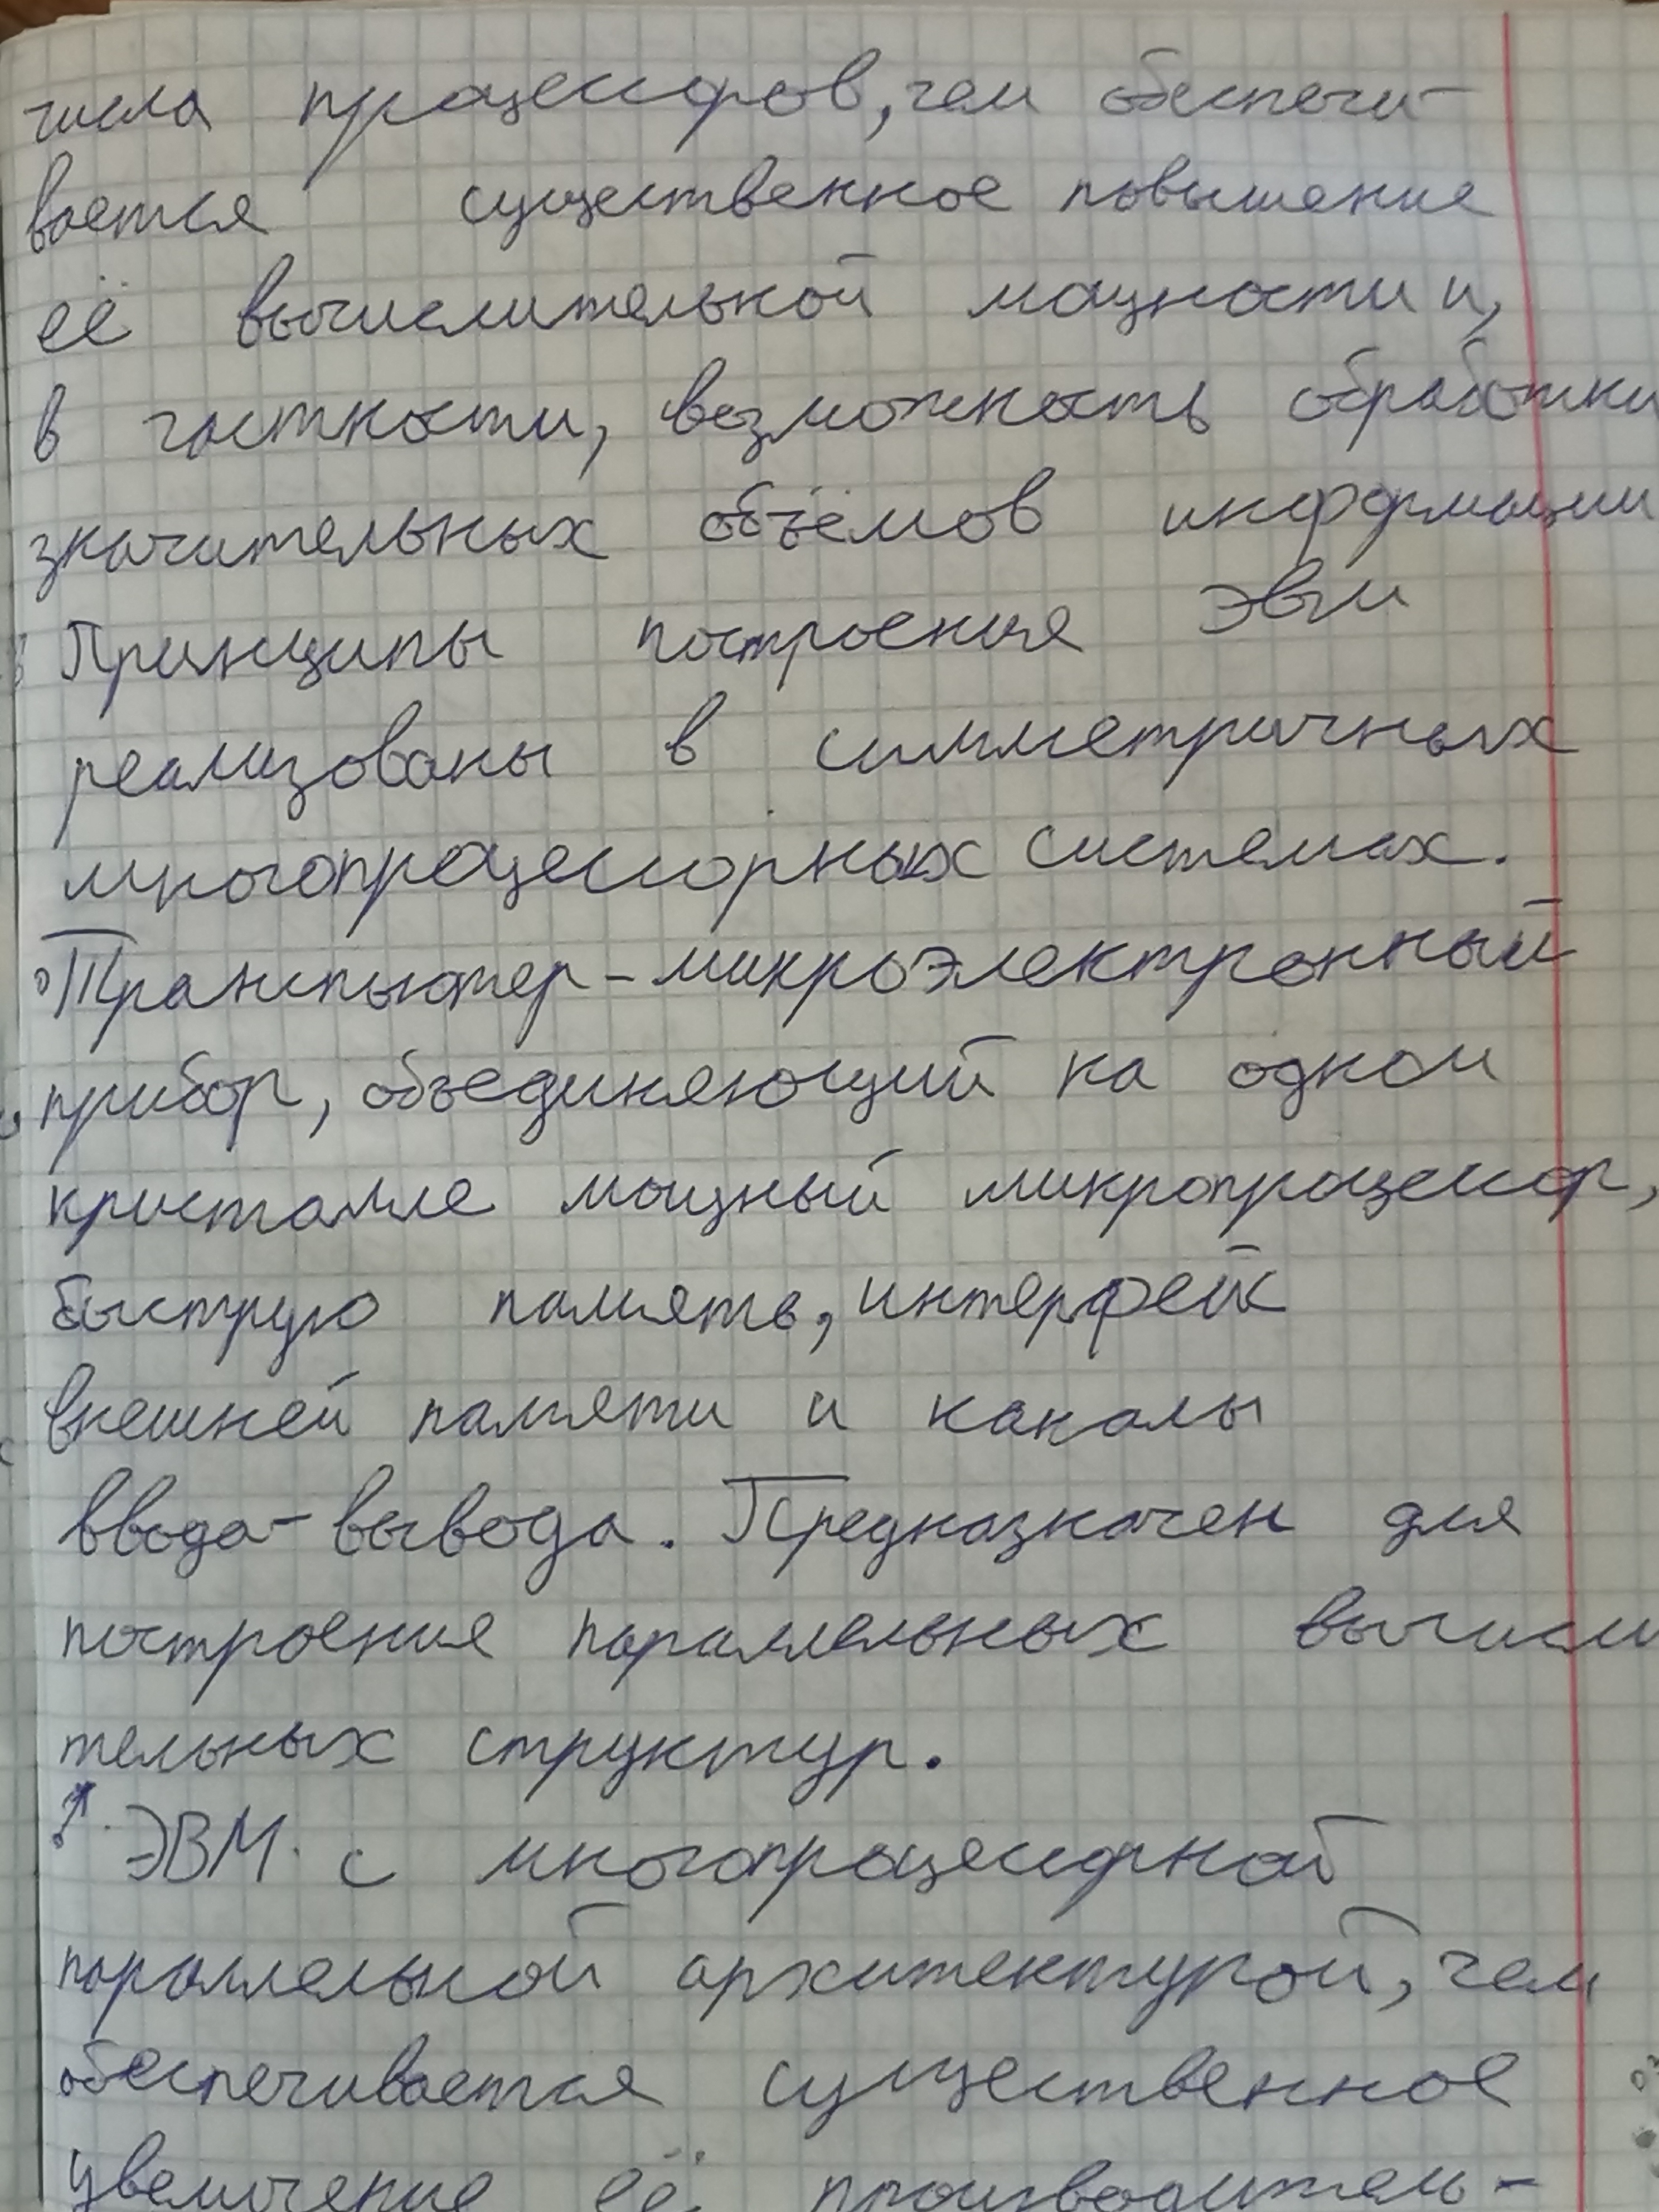 числа процессоров, чем обеспечи-
вается существенное повышение
её вычислительной мощности и,
в частности, возможность обработки
значительных объёмов информации
Принципы построения ЭВМ
реализованы в симметричных
многопроцессорных системах.
Транспьютер - микроэлектронный
прибор, объединяющий на одном
кристалле мощный микропроцессор,
быструю память, интерфейс
внешней памяти и каналы
ввода-вывода. Предназначен для
построения параллельных вычисли
тельных структур.
ЭВМ с многопроцессорной
параллельной архитектурой, чем
обеспечивается существенное
увеличение её производитель-